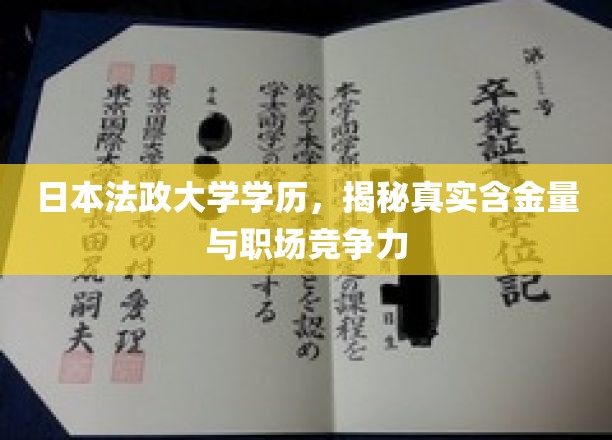 日本法政大学学历，揭秘真实含金量
与职场竞争力
第 号
卒業証 位記
日生
本学商学部 定の課程を
修めて本学 ことを認め
学士(商学)の する
平成
東京国際大学 田村愛理
東京国際大 長田尻嗣夫